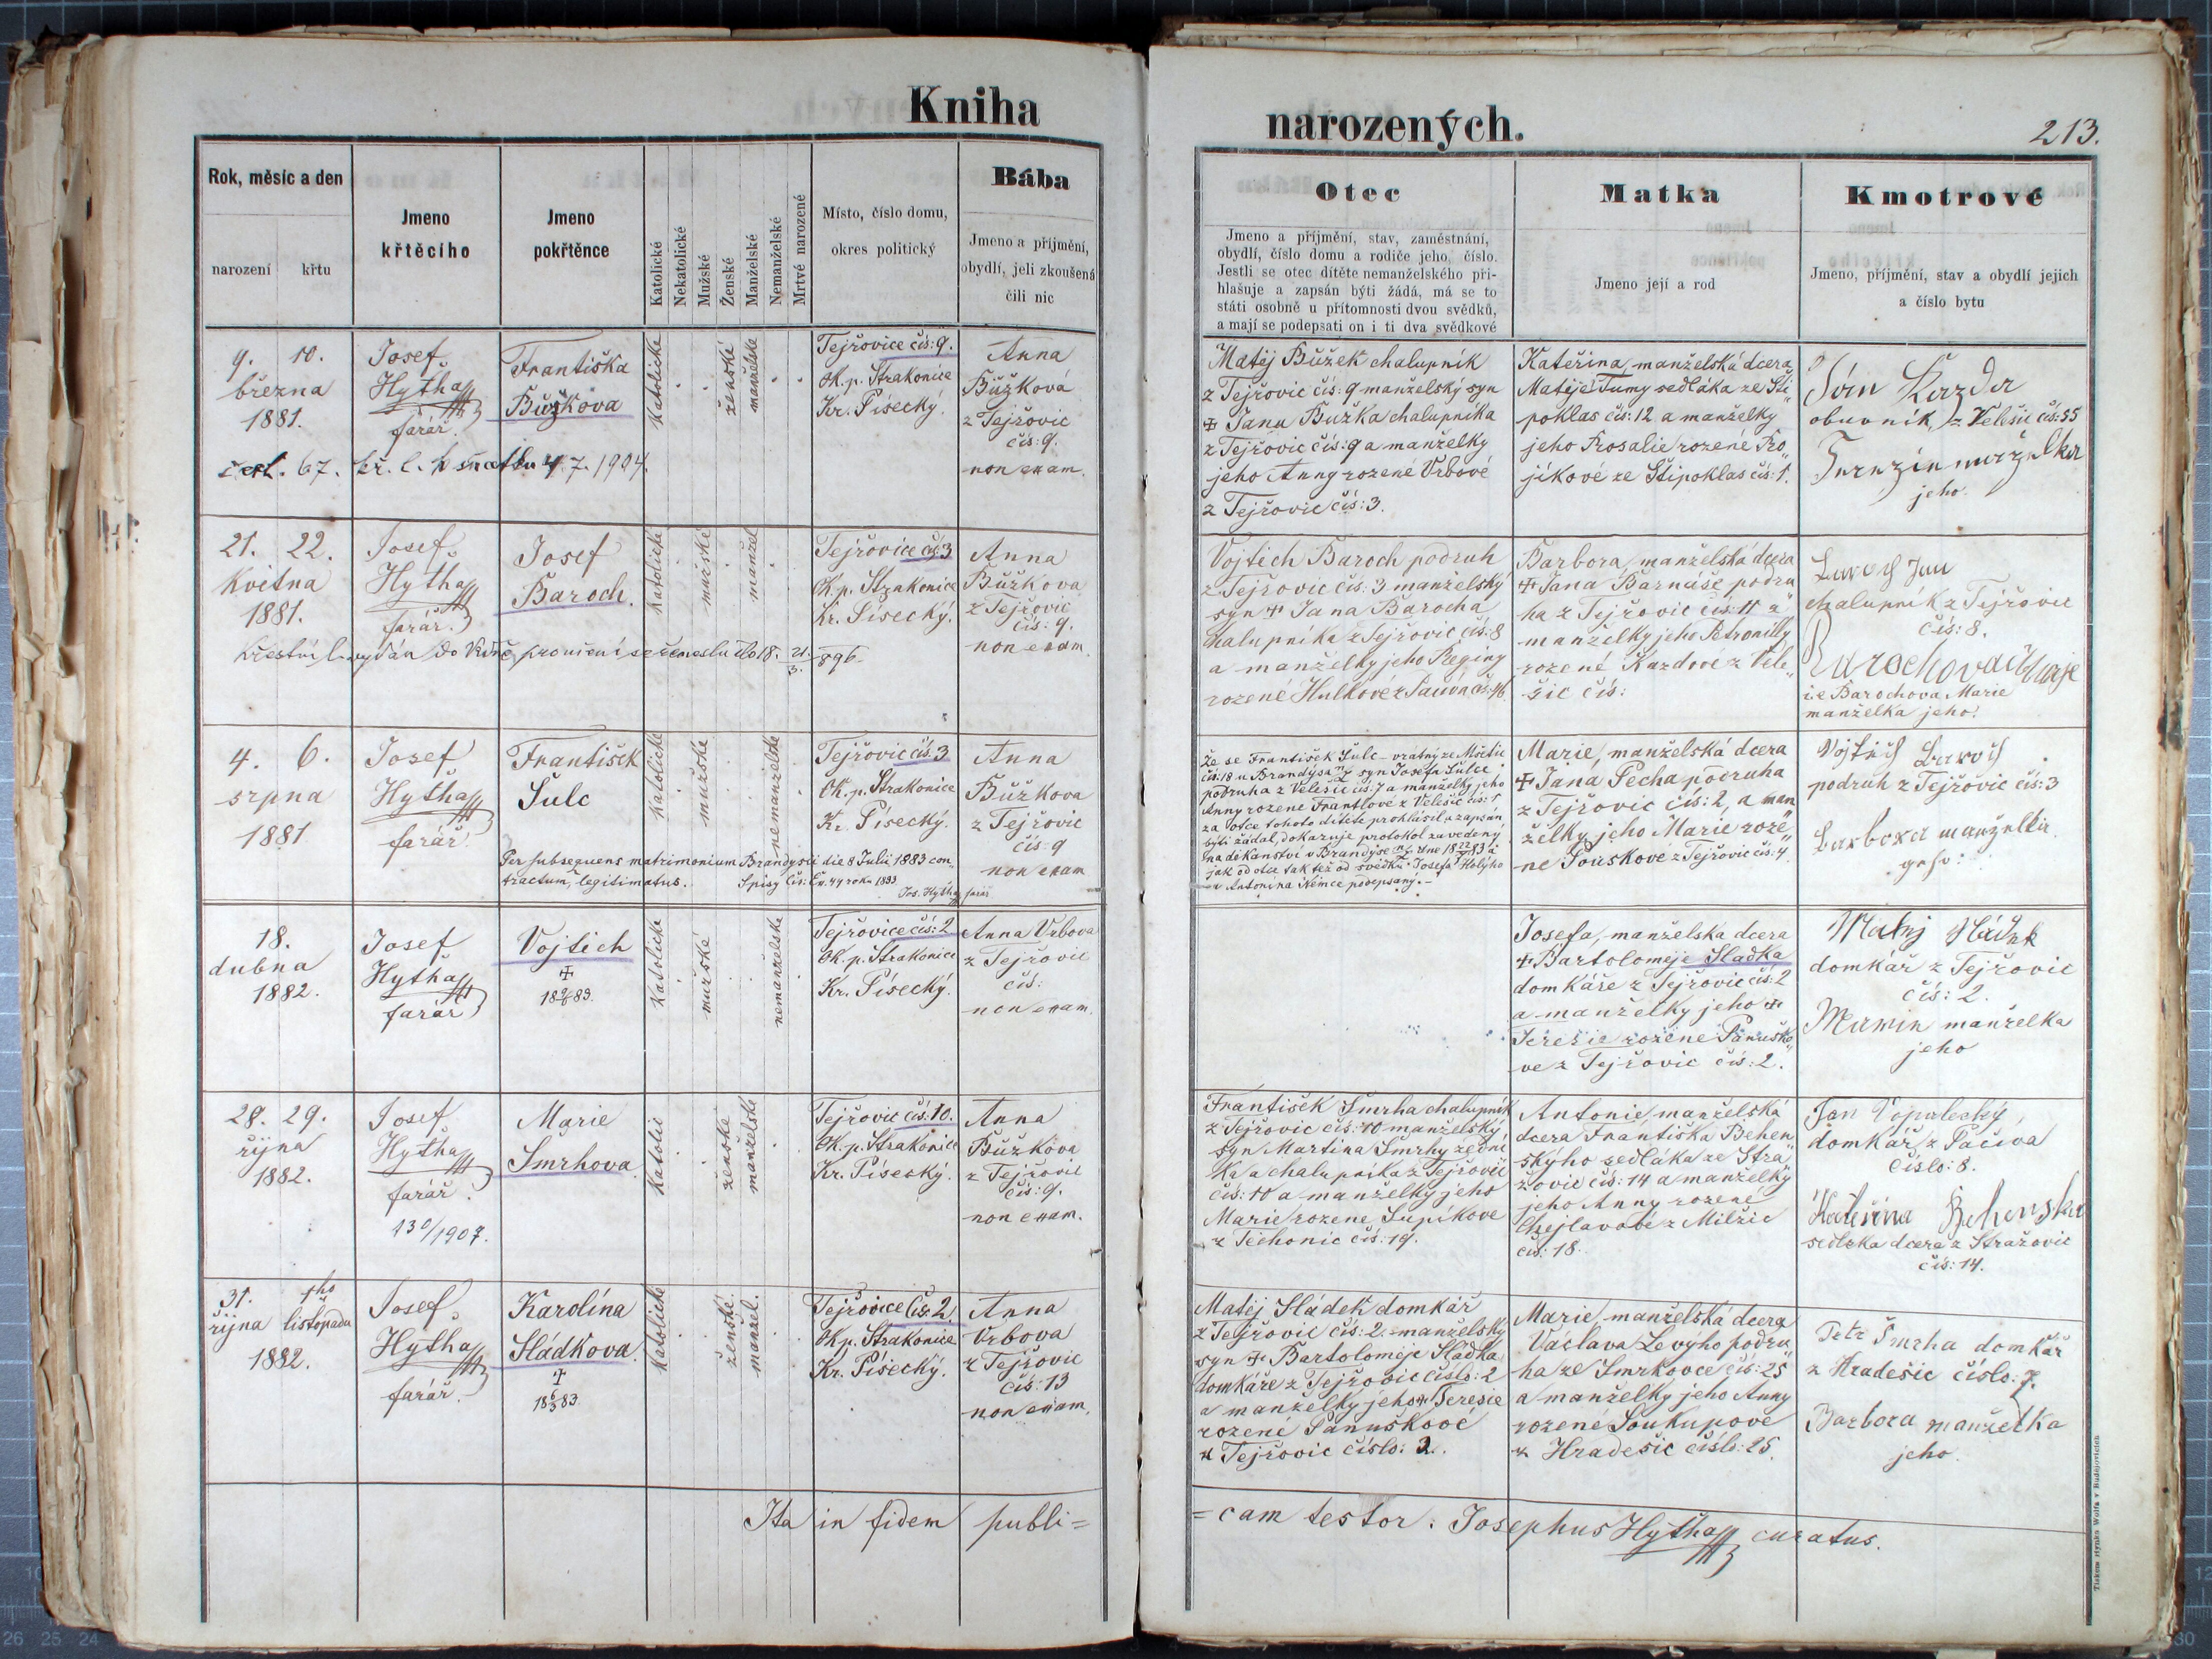 Kniha
narozených.
213.
Rok, měsíc a den
narození
křtu
Jmeno
křtěcího
Jmeno
pokřtěnce
Katolické
Nekatolické
Mužské
Ženské
Manželské
Nemanželské
Mrtvé narozené
Místo, číslo domu,
okres politický
Bába
Jmeno a příjmění,
obydlí, jeli zkoušená
čili nic
Otec
Jmeno a příjmění, stav, zaměstnání,
obydlí, číslo domu a rodiče jeho, číslo.
Jestli se otec dítěte nemanželského při-
hlašuje a zapsán býti žádá, má se to
státi osobně u přítomnosti dvou svědků,
a mají se podepsati on i ti dva svědkové
Matka
Jmeno její a rod
Kmotrové
Jmeno, příjmění, stav a obydlí jejich
a číslo bytu
9. 10.
března
1881.
Josef
Hytha
farář.
Františka
Bůžkova
Katolické
ženské
manželské
Tejřovice čís: 9.
Ok. p. Strakonice
Kr. Písecký.
Anna
Bůžková
z Tejřovic
čís: 9.
non exam.
67. 4. 7. 1904.
Matěj Bůžek chalupník
z Tejřovic čís: 9 manželský syn
+ Jana Buzka chalupníka
z Tejřovic čís: 9 a manželky
jeho Anny rozené Vrbové
z Tejřovic čís: 3.
Kateřina, manželská dcera
Matěje Tumy sedláka ze Sti„
poklas čís: 12 a manželky
jeho Rosalie rozené Ro„
jíkové ze Štipoklas čís: 1.
Kazda
obuvník z Velešic čís: 55
jeho.
21. 22.
května
1881.
Josef
Hytha
farář.
Josef
Baroch.
Katolické
mužské
manžel
Tejřovice čís: 3
Ok. p. Strakonice
Kr. Písecký.
Anna
Bůžkova
z Tejřovic
čís: 9.
non exam
Křestní l. vydán 18. 21./3. 896.
Vojtěch Baroch podruh
z Tejřovic čís. 3 manželský
syn + Jana Barocha
chalupníka z Tejřovic čís: 8
a manželky jeho Reginy
rozené Hulkové z
Barbora, manželská dcera
+ Jana Barnáše podru
ha z Tejřovic čís: 11 a
manželky jeho Petronilly
rozené Kazdové z Vele„
šic čís:
Jan
chalupník z Tejřovic
čís: 8.
Barochova Marje
i.e Barochova Marie
manželka jeho.
4. 6.
srpna
1881
Josef
Hytha
farář.
František
Šulc
Katolické
mužské
nemanželské
Tejřovic čís: 3
Ok. p. Strakonice
Kr. Písecký.
Anna
Bůžkova
z Tejřovic
čís: 9
non exam
Per subsequens matrimonium Brandysii die 8 Julii 1883 con„
tractum, legitimatus. Spisy čís: 44 roku 1883
Jos. Hytha farář
Že se František Šulc
čís: 18 u Brandýsa n/L syn Josefa Šulce
podruha z Velešic čís: 7 a manželky jeho
Anny rozené Frantlové z Velešic čís: 1
za otce tohoto dítěte prohlásil a zapsán
býti žádal, dokazuje protokol zavedený
na děkanství v Brandýse n/L dne
jak od otce tak též od svědků Josefa Holýho
a Antonína Němce podepsaný.
Marie, manželská dcera
+ Jana Pecha podruha
z Tejřovic čís: 2, a man„
želky jeho Marie roze„
né Souskové z Tejřovic čís: 4.
Vojtěch
podruh z Tejřovic čís: 3
Barbora manželka
18.
dubna
1882.
Josef
Hytha
farář
Vojtěch
+
Katolické
mužské
nemanželské
Tejřovice čís: 2
Ok. p. Strakonice
Kr. Písecký.
Anna Vrbova
z Tejřovic
čís:
non exam.
Josefa, manželská dcera
+ Bartoloměje Sladka
domkáře z Tejřovic čís: 2
a manželky jeho +
Terezie rozené Panuško„
ve z Tejřovic čís: 2.
domkář z Tejřovic
čís: 2.
manželka
jeho
28. 29.
října
1882.
Josef
Hytha
farář.
1907.
Marie
Šmrhova
Katolic
ženské
manželské
Tejřovic čís: 10.
Ok. p. Strakonice
Kr. Písecký.
Anna
Bůžkova
z Tejřovic
čís: 9.
non exam.
František Šmrha chalupník
z Tejřovic čís: 10 manželský
syn Martina Šmrhy zední
ka a chalupníka z Tejřovic
čís: 10 a manželky jeho
Marie rozene Lupíkove
z Těchonic čís: 19.
Antonie manželská
dcera Františka Behen„
skýho sedláka ze Stra„
žovic čís: 14 a manželky
jeho Anny rozené
z Milžic
čís: 18.
Jan
domkář z Pačiva
číslo: 8.
Kateřina Behenska
sedlska dcera z Stražovic
čís: 14.
31. 1ho
října listopadu
1882.
Josef
Hytha
farář.
Karolína
Sládkova.
+
Katolické
ženské
manžel.
Tejřovice čís: 2.
Ok p. Strakonice
Kr. Písecký.
Anna
Vrbova
z Tejřovic
čís: 13
non exam.
Matěj Sládek domkář
z Tejřovic čís: 2. manželský
syn + Bartoloměje Sladka
domkáře z Tejřovic číslo: 2
a manželky jeho + Teresie
rozené Panuškové
z Tejřovic číslo: 2.
Marie, manželská dcera
Vaclava Levýho podru„
ha ze Smrkovce čís: 25
a manželky jeho Anny
rozené Soukupove
z Hradešic číslo: 25.
Petr Šmrha domkář
z Hradešic číslo: 7.
Barbora manželka
jeho.
Ita in fidem publi=
=cam testor. Josephus Hytha curatus.
Tiskem Hynka Wolfa v Budějovicích